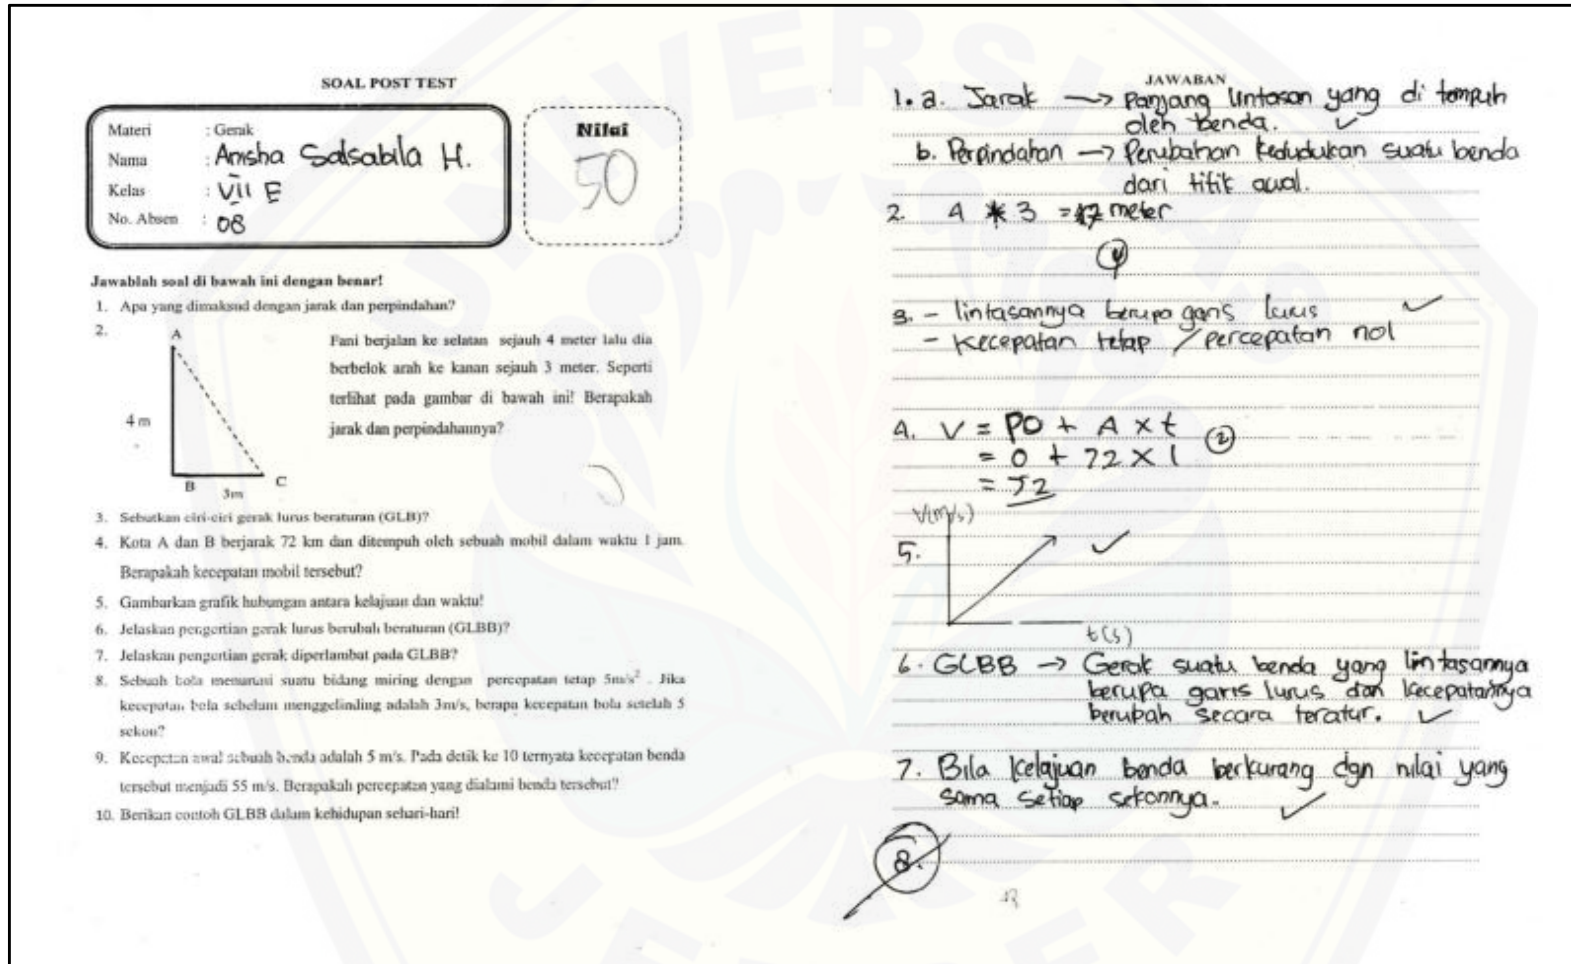 SOAL POST TEST
Materi : Gerak
Nama : Anisha Salsabila H.
Kelas : VII E
No. Absen : 08
Nilai
50
Jawablah soal di bawah ini dengan benar!
1. Apa yang dimaksud dengan jarak dan perpindahan?
2.
A
4 m
B
3m
C
Fani berjalan ke selatan sejauh 4 meter lalu dia
berbelok arah ke kanan sejauh 3 meter. Seperti
terlihat pada gambar di bawah ini! Berapakah
jarak dan perpindahannya?
3. Sebutkan ciri-ciri gerak lurus beraturan (GLB)?
4. Kota A dan B berjarak 72 km dan ditempuh oleh sebuah mobil dalam waktu 1 jam.
Berapakah kecepatan mobil tersebut?
5. Gambarkan grafik hubungan antara kelajuan dan waktu!
6. Jelaskan pengertian gerak lurus berubah beraturan (GLBB)?
7. Jelaskan pengertian gerak diperlambat pada GLBB?
8. Sebuah bola menuruni suatu bidang miring dengan percepatan tetap 5m/s². Jika
kecepatan bola sebelum menggelinding adalah 3m/s, berapa kecepatan bola setelah 5
sekon?
9. Kecepatan awal sebuah benda adalah 5 m/s. Pada detik ke 10 ternyata kecepatan benda
tersebut menjadi 55 m/s. Berapakah percepatan yang dialami benda tersebut?
10. Berikan contoh GLBB dalam kehidupan sehari-hari!
JAWABAN
1. a. Jarak → Panjang lintasan yang di tempuh
oleh benda. ✓
b. Perpindahan → Perubahan kedudukan suatu benda
dari titik awal.
2. 4 3 = meter
3. - lintasannya berupa garis lurus ✓
- Kecepatan tetap / percepatan nol
4. V = PO + A x t
= 0 + 72 x 1 (2)
= 72
V(m/s)
5. ✓
t(s)
6. GLBB → Gerak suatu benda yang lintasannya
berupa garis lurus dan kecepatannya
berubah secara teratur. ✓
7. Bila kelajuan benda berkurang dgn nilai yang
sama setiap sekonnya. ✓
8.